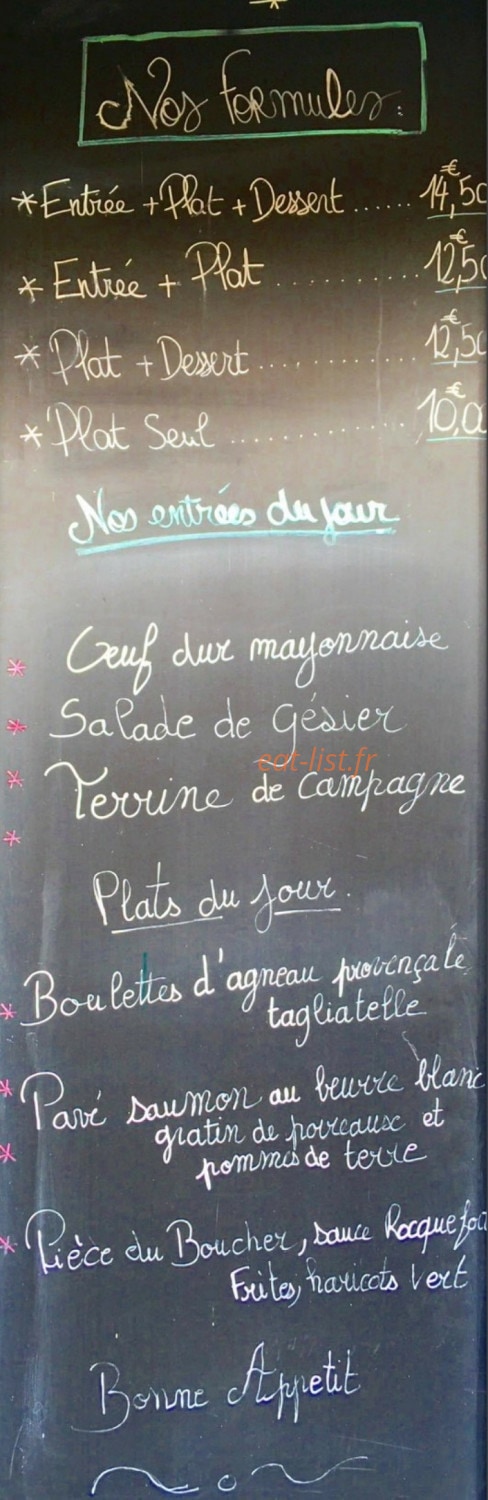 Nos Formules:
* Entrée + Plat + Dessert ...... 14,50€
* Entrée + Plat ............ 12,50€
* Plat + Dessert ............ 12,50€
* Plat Seul ............ 10,00€
Nos entrées du jour
* Œuf dur mayonnaise
* Salade de Gésier
eat-list.fr
* Terrine de Campagne
*
Plats du jour.
* Boulettes d'agneau provençale
tagliatelle
* Pavé saumon au beurre blanc
gratin de poireaux et
* pommes de terre
* Pièce du Boucher, sauce Rocquefo
Frites, haricots vert
Bonne Appetit